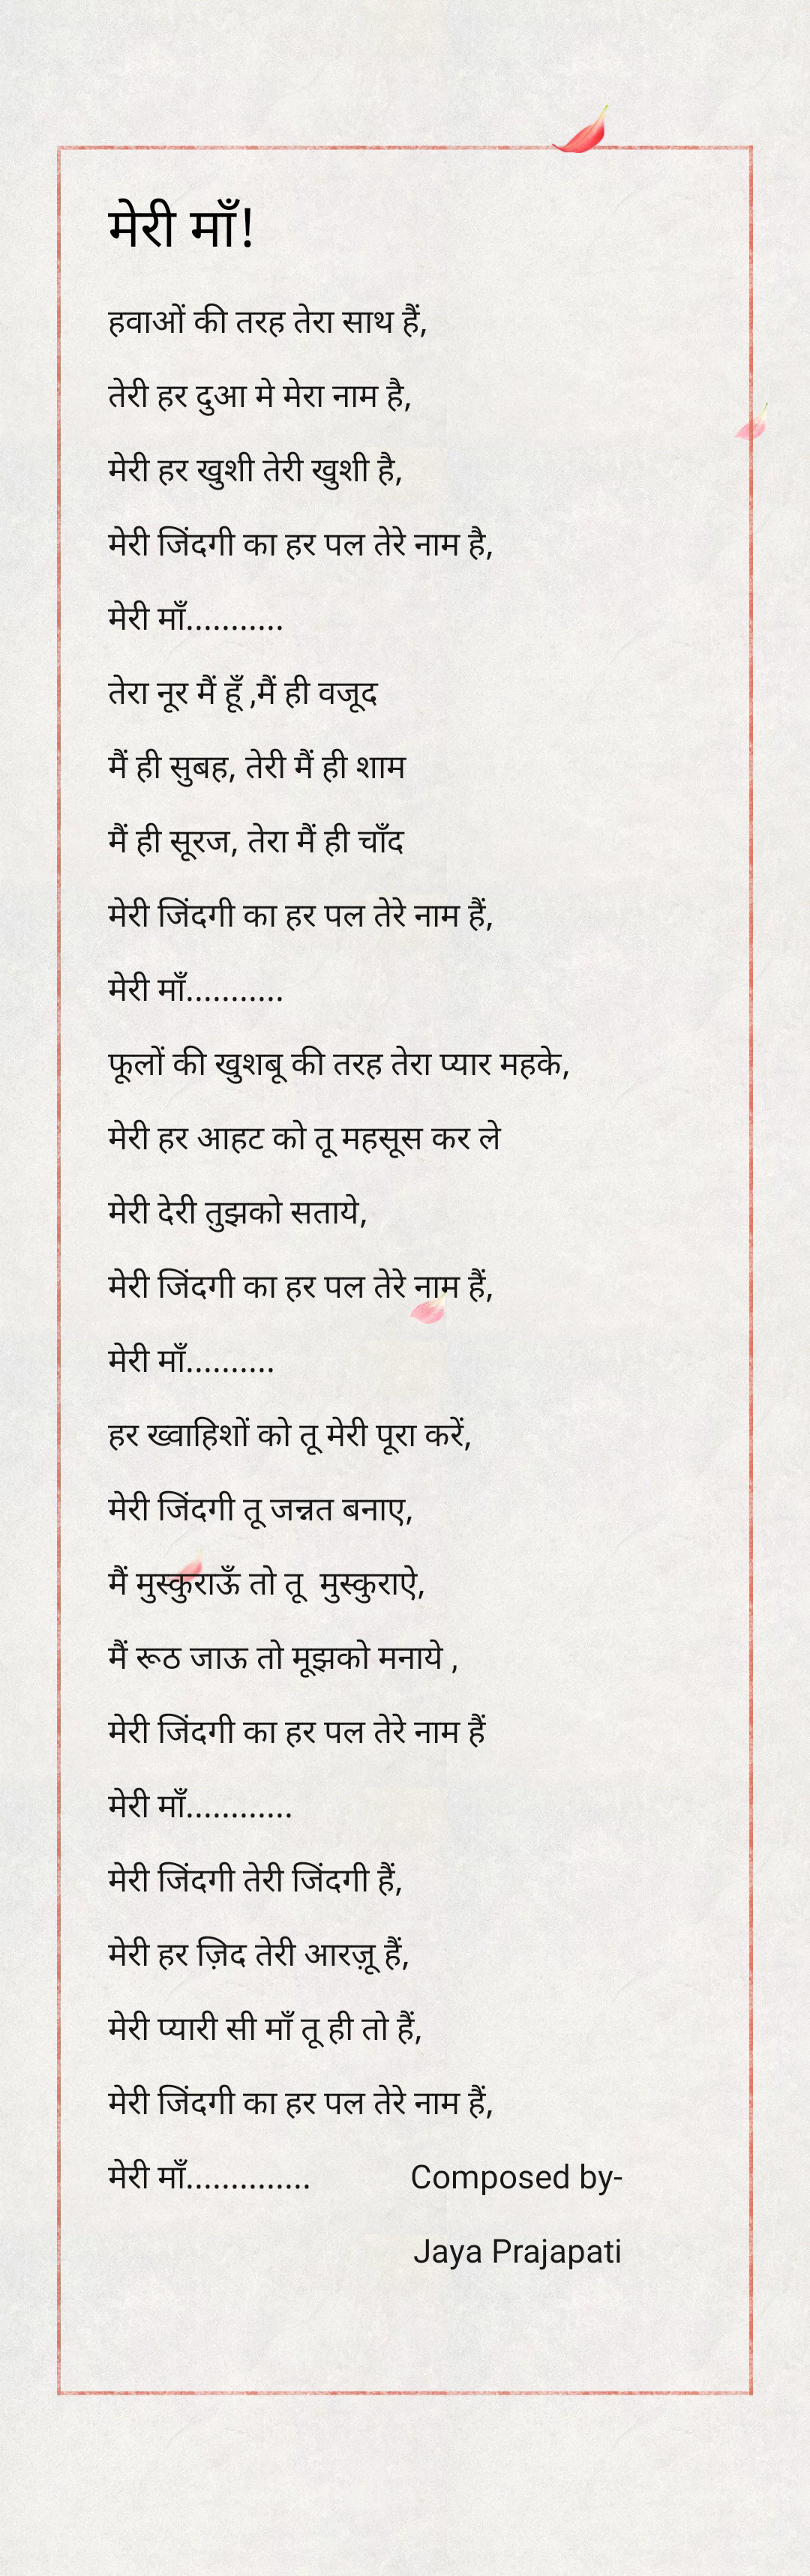 मेरी माँ!
हवाओं की तरह तेरा साथ हैं,
तेरी हर दुआ मे मेरा नाम है,
मेरी हर खुशी तेरी खुशी है,
मेरी जिंदगी का हर पल तेरे नाम है,
मेरी माँ...........
तेरा नूर मैं हूँ ,मैं ही वजूद
मैं ही सुबह, तेरी मैं ही शाम
मैं ही सूरज, तेरा मैं ही चाँद
मेरी जिंदगी का हर पल तेरे नाम हैं,
मेरी माँ...........
फूलों की खुशबू की तरह तेरा प्यार महके,
मेरी हर आहट को तू महसूस कर ले
मेरी देरी तुझको सताये,
मेरी जिंदगी का हर पल तेरे नाम हैं,
मेरी माँ..........
हर ख्वाहिशों को तू मेरी पूरा करें,
मेरी जिंदगी तू जन्नत बनाए,
मैं मुस्कुराऊँ तो तू  मुस्कुराऐ,
मैं रूठ जाऊ तो मूझको मनाये ,
मेरी जिंदगी का हर पल तेरे नाम हैं
मेरी माँ............
मेरी जिंदगी तेरी जिंदगी हैं,
मेरी हर ज़िद तेरी आरज़ू हैं,
मेरी प्यारी सी माँ तू ही तो हैं,
मेरी जिंदगी का हर पल तेरे नाम हैं,
मेरी माँ.............. Composed by-
Jaya Prajapati